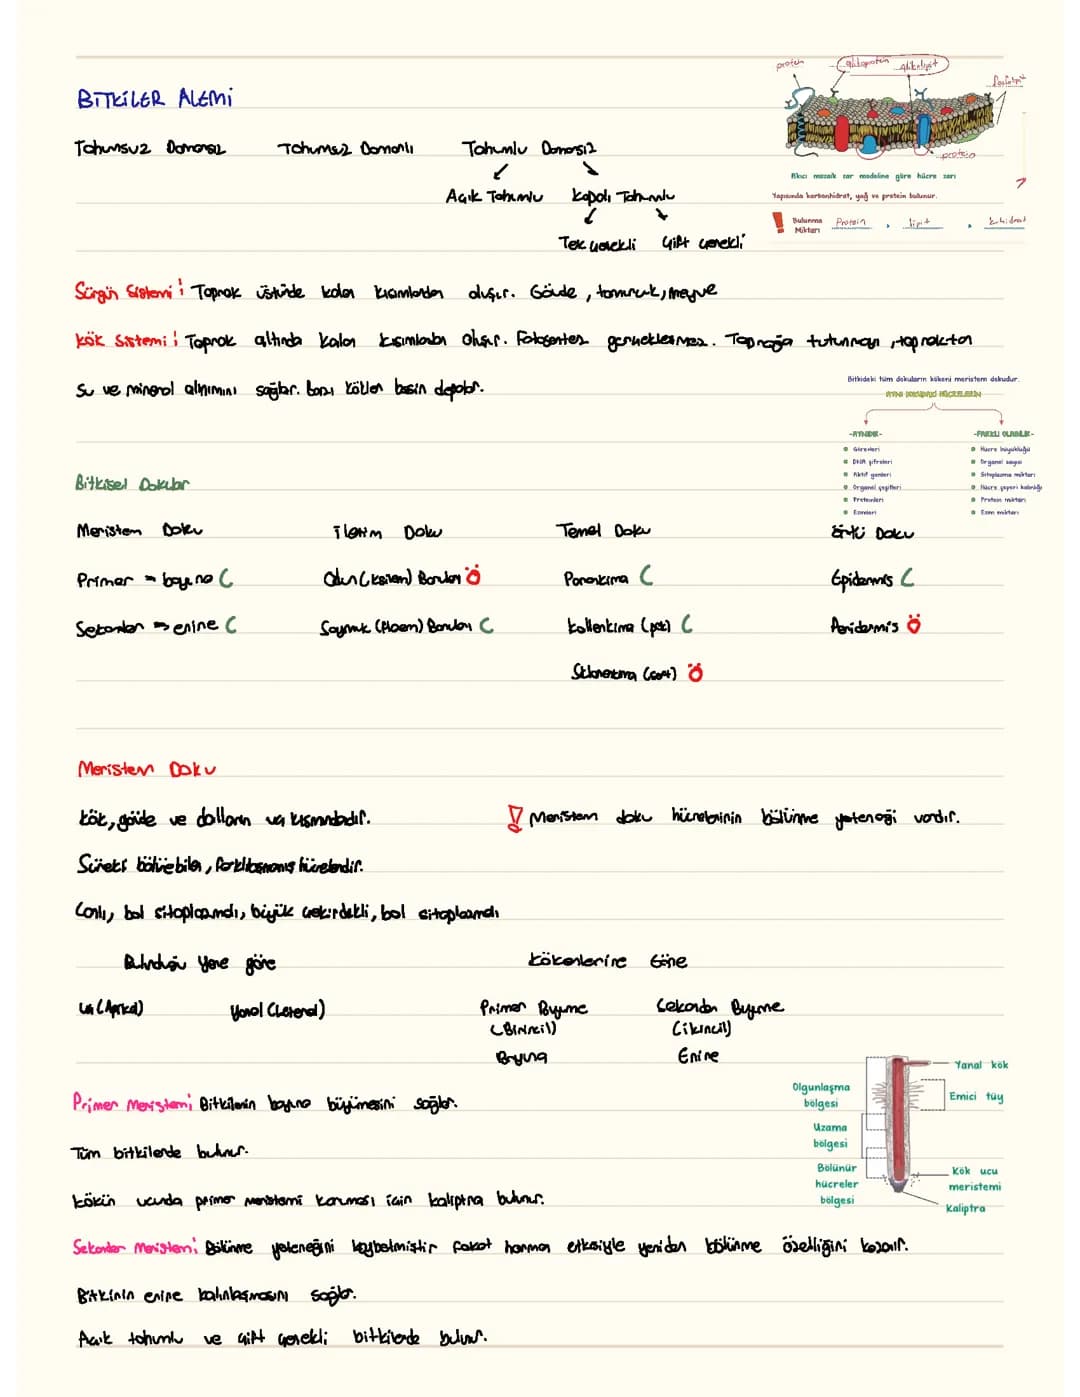 BITKILER ALEMI
Tohumsuz Damarsız Tohumsuz Damarlı Tohumlu Damarsız
Açık Tohumlu Kapalı Tohumlu
Tek çenekli Çift çenekli
protein glikoprotein glikolipit fosfolipit
protein
Akıcı mozaik zar modeline göre hücre zarı
Yapısında karbonhidrat, yağ ve protein bulunur.
! Bulunma Miktarı Protein > lipit > k.hidrat
Sürgün Sistemi: Toprak üstünde kalan kısımlardan oluşur. Gövde, tomurcuk, meyve
Kök Sistemi: Toprak altında kalan kısımlardan oluşur. Fotosentez gerçekleşmez. Toprağa tutunmayı, topraktan
su ve mineral alınımını sağlar. bazı kökler besin depolar.
Bitkideki tüm dokuların kökeni meristem dokudur.
AYNI DOKUDAKİ HÜCRELERİN
-AYNIDIR-
Görevleri
DNA şifreleri
Aktif genleri
Organel çeşitleri
Proteinleri
Enzimleri
-FARKLI OLABİLİR-
Hücre büyüklüğü
Organel sayısı
Sitoplazma miktarı
Hücre çeperi kalınlığı
Protein miktarı
Enzim miktarı
Bitkisel Dokular
Meristem Doku İletim Doku Temel Doku Örtü Doku
Primer ⇒ boyuna C Odun (ksilem) Boruları Ö Parankima C Epidermis C
Sekonder ⇒ enine C Soymuk (floem) Boruları C Kollenkima (pek) C Peridermis Ö
Sklerenkima (sert) Ö
Meristem Doku
Kök, gövde ve dalların uç kısmındadır. ! Meristem doku hücrelerinin bölünme yeteneği vardır.
Sürekli bölünebilen, farklılaşmamış hücrelerdir.
Canlı, bol sitoplazmalı, büyük çekirdekli, bol sitoplazmalı
Bulunduğu Yere göre Kökenlerine Göre
Uç (Apikal) Yanal (Lateral) Primer Büyüme (Birincil) Boyuna Sekonder Büyüme (İkincil) Enine
Primer Meristem: Bitkilerin boyuna büyümesini sağlar.
Tüm bitkilerde bulunur.
Kökün ucunda primer meristemi koruması için kaliptra bulunur.
Olgunlaşma bölgesi
Uzama bölgesi
Bölünür hücreler bölgesi
Yanal kök
Emici tüy
Kök ucu meristemi
Kaliptra
Sekonder Meristem: Bölünme yeteneğini kaybetmiştir fakat hormon etkisiyle yeniden bölünme özelliğini kazanır.
Bitkinin enine kalınlaşmasını sağlar.
Açık tohumlu ve çift çenekli bitkilerde bulunur.